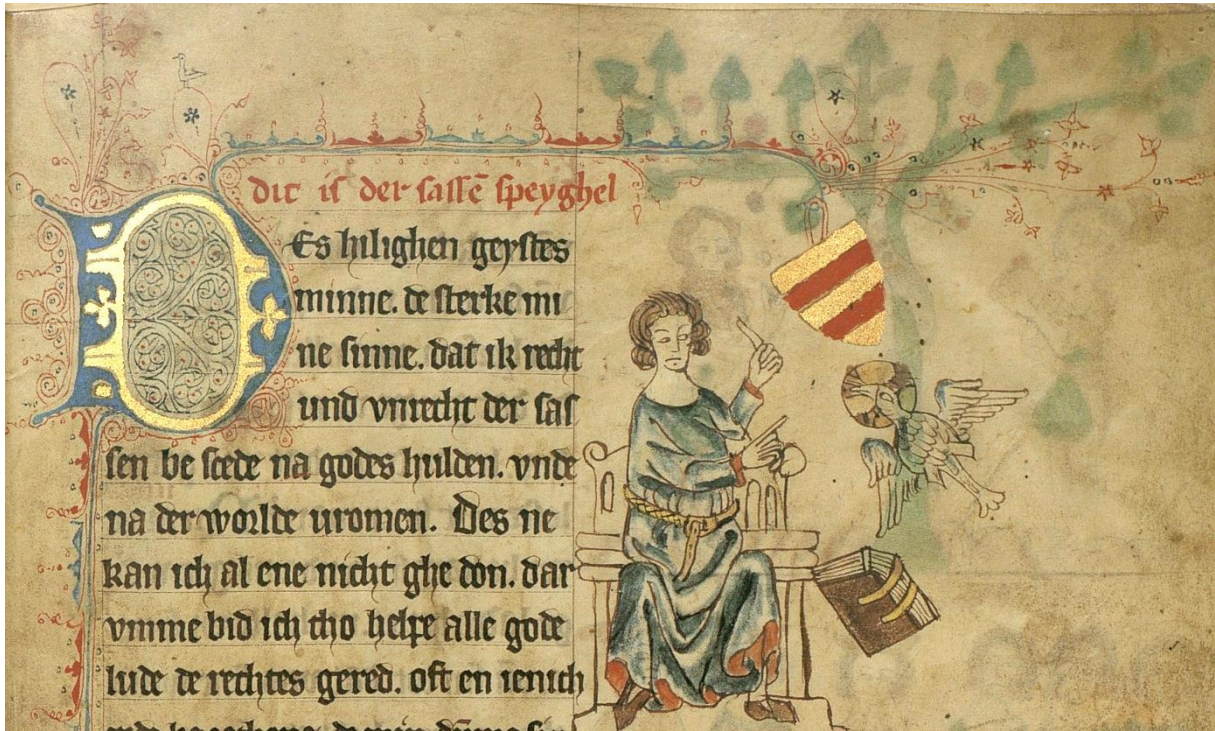 dit is der sassē speyghel
DEs hilighen geystes
minne. de sterke mi
ne sinne. dat ik recht
und vnrecht der sas
sen be scede na godes hulden. vnde
na der worlde uromen. Des ne
kan ich al ene nicht ghe don. dar
vmme bid ich tho helpe alle gode
lude de rechtes gered. oft en ienich